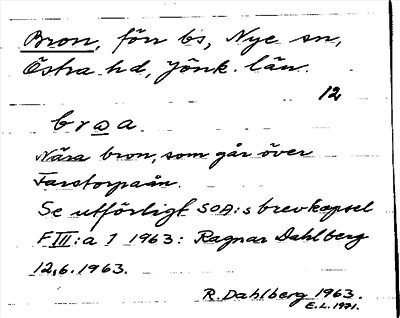 Bron, förr bs, Nye sn,
Östra hd, Jönk. län.
12
broa
Nära bron, som går över
Farstorpaån.
Se utförligt SOA:s brevkapsel
F III:a 7 1963: Ragnar Dahlberg
12.6.1963.
R. Dahlberg 1963.
E.L. 1971.